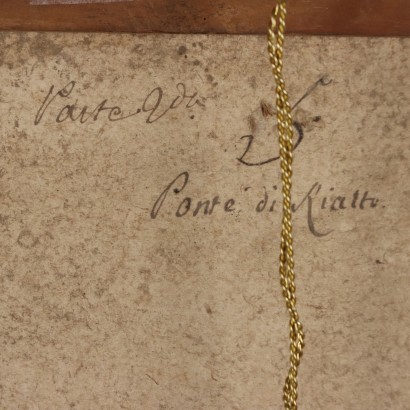 Parte 2da
Ponte di Rialto.